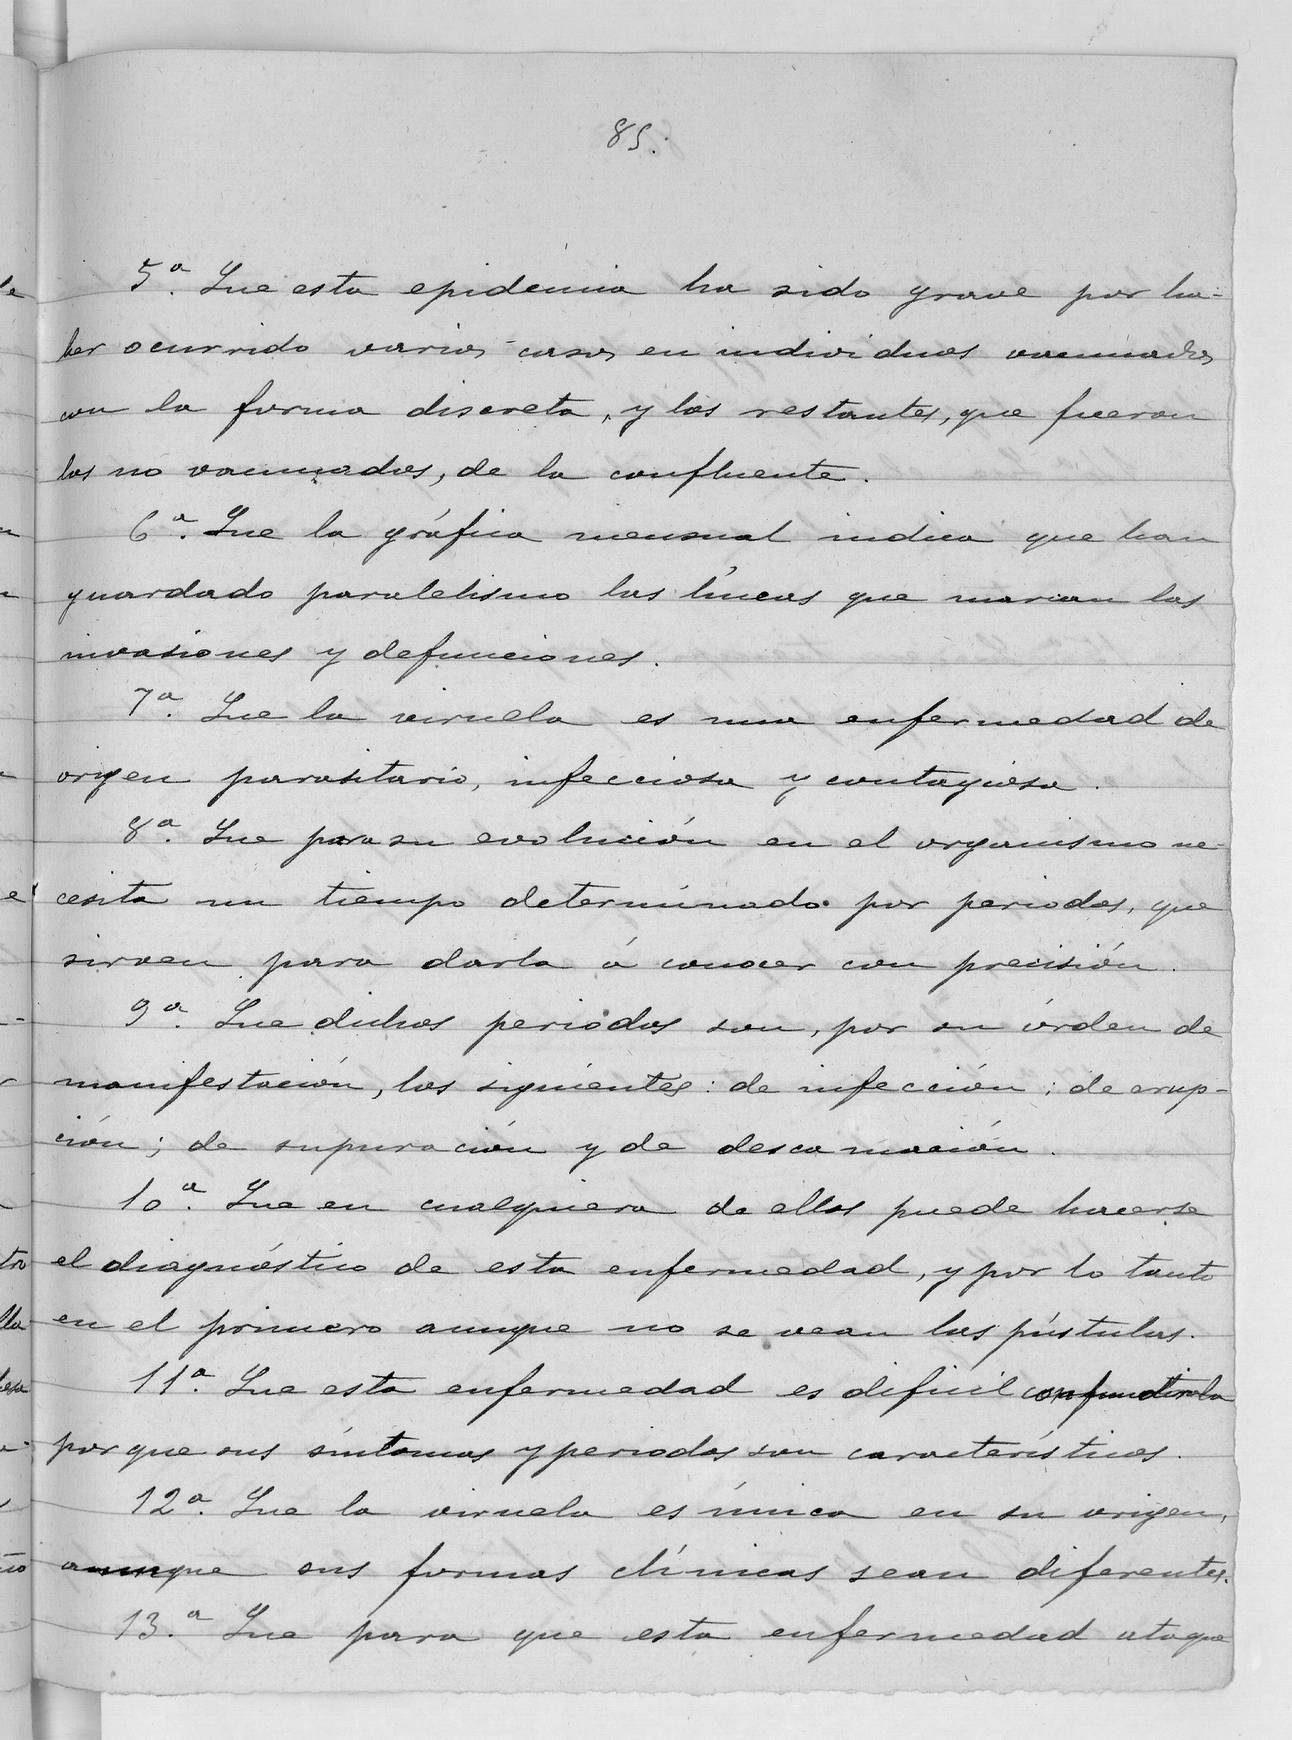 85.
5ª. Que esta epidemia ha sido grave por ha-
ber ocurrido varios casos en individuos vacunados
con la forma discreta, y los restantes, que fueron
los no vacunados, de la confluente.
6ª. Que la gráfica mensual indica que han
guardado paralelismo las líneas que marcan las
invasiones y defunciones.
7ª. Que la viruela es una enfermedad de
origen parasitario, infecciosa y contagiosa.
8ª. Que para su evolución en el organismo ne-
cesita un tiempo determinado por periodos, que
sirven para darla á conocer con precisión.
9ª. Que dichos periodos son, por su órden de
manifestación, los siguientes: de infección; de erup-
ción; de supuración y de descamación.
10ª. Que en cualquiera de ellos puede hacerse
el diagnóstico de esta enfermedad, y por lo tanto
en el primero aunque no se vean las pústulas.
11ª. Que esta enfermedad es dificil confundirla
porque sus síntomas y periodos son característicos.
12ª. Que la viruela es única en su origen,
aunque sus formas clínicas sean diferentes.
13.ª Que para que esta enfermedad ataque